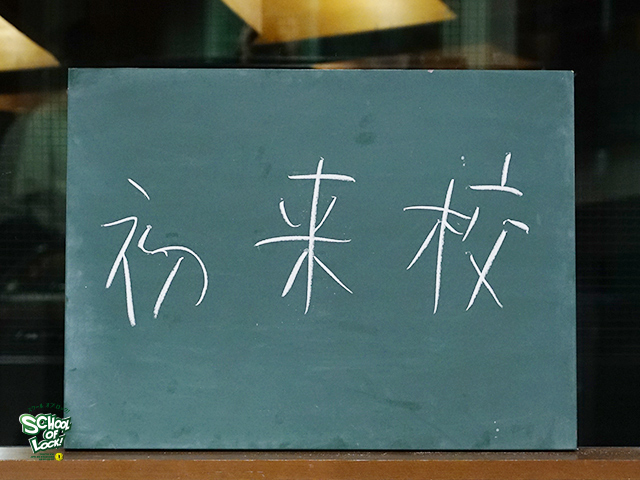 初来校
SCHOOL
OF
LOCK!